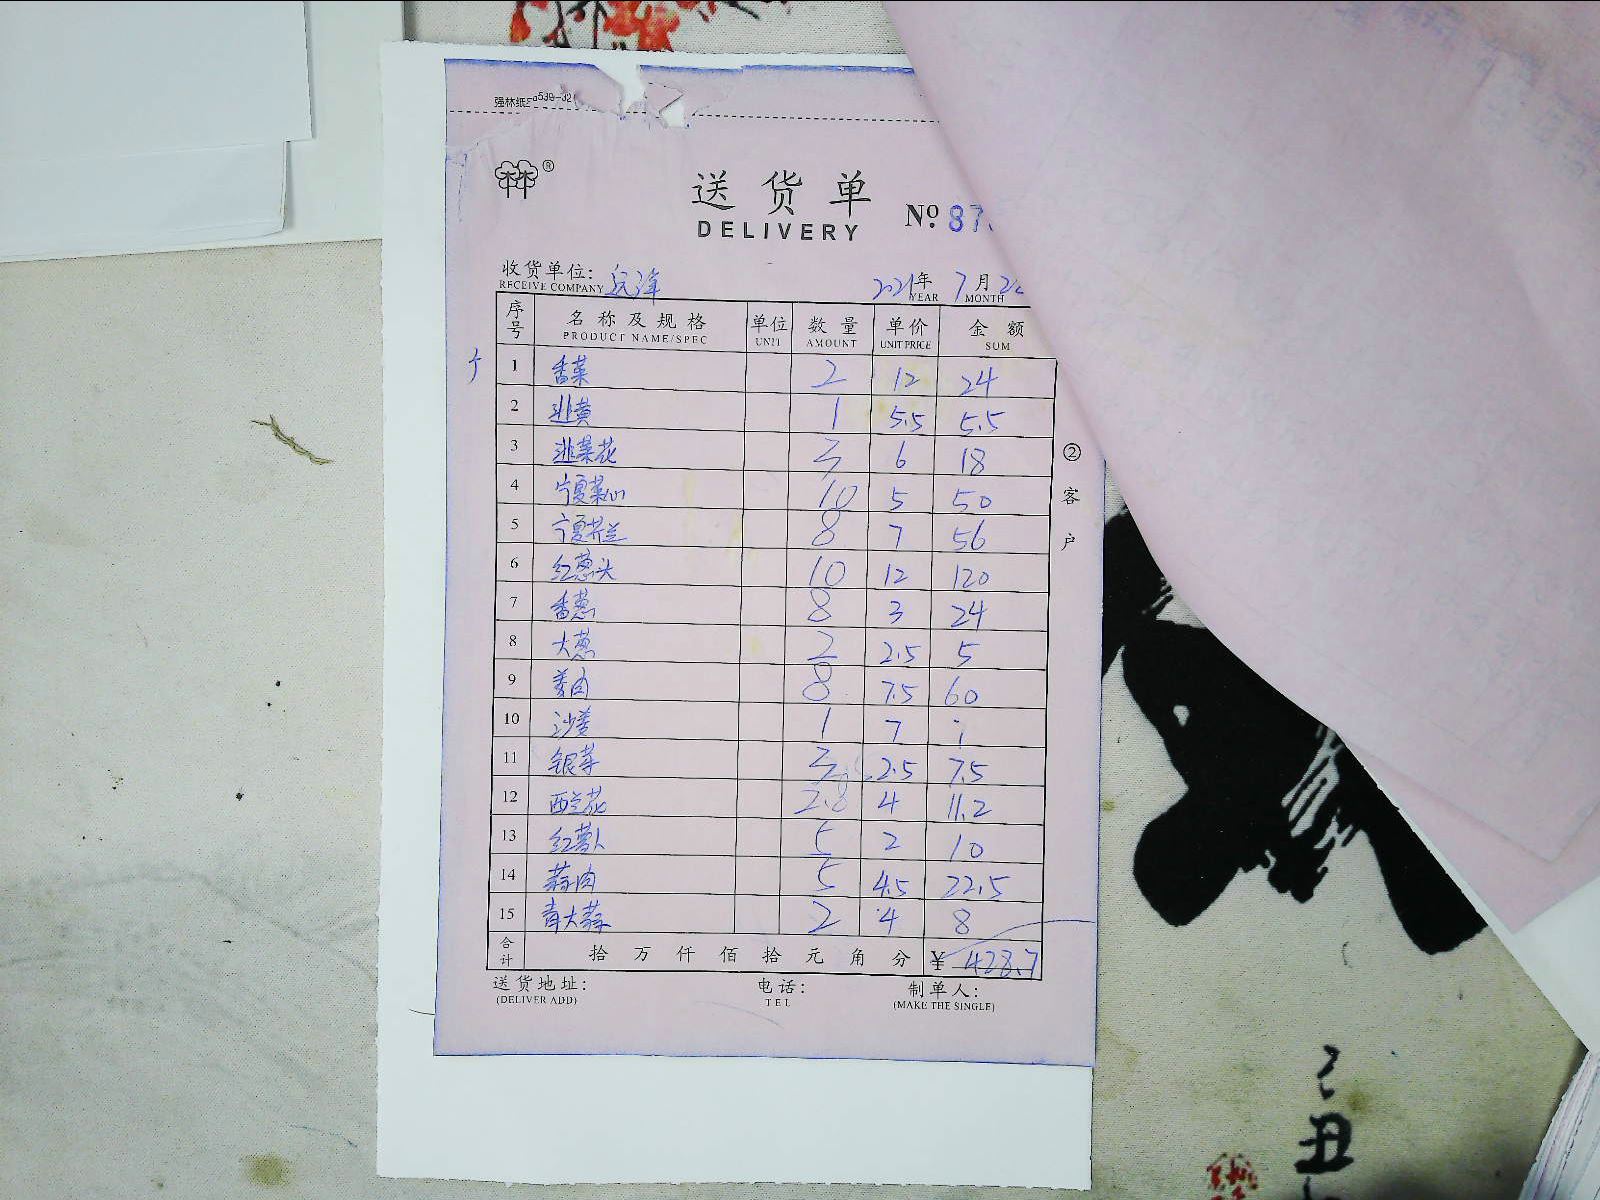 强林纸品539-32
林®
送货单
DELIVERY
№ 87
收货单位: 远洋 2021年 7月 2
RECEIVE COMPANY YEAR MONTH
序号 名称及规格 单位 数量 单价 金额
PRODUCT NAME/SPEC UNIT AMOUNT UNIT PRICE SUM
1 香菜 2 12 24
2 韭黄 1 5.5 5.5
3 韭菜花 3 6 18
4 宁夏菜心 10 5 50
5 宁夏芥兰 8 7 56
6 红葱头 10 12 120
7 香葱 8 3 24
8 大葱 2 2.5 5
9 姜肉 8 7.5 60
10 沙姜 1 7 7
11 银芽 3 2.5 7.5
12 西兰花 2.8 4 11.2
13 红萝卜 5 2 10
14 蒜肉 5 4.5 22.5
15 青大蒜 2 4 8
合计 拾 万 仟 佰 拾 元 角 分 ¥ 428.7
送货地址: 电话: 制单人:
(DELIVER ADD) TEL (MAKE THE SINGLE)
②客户
丑